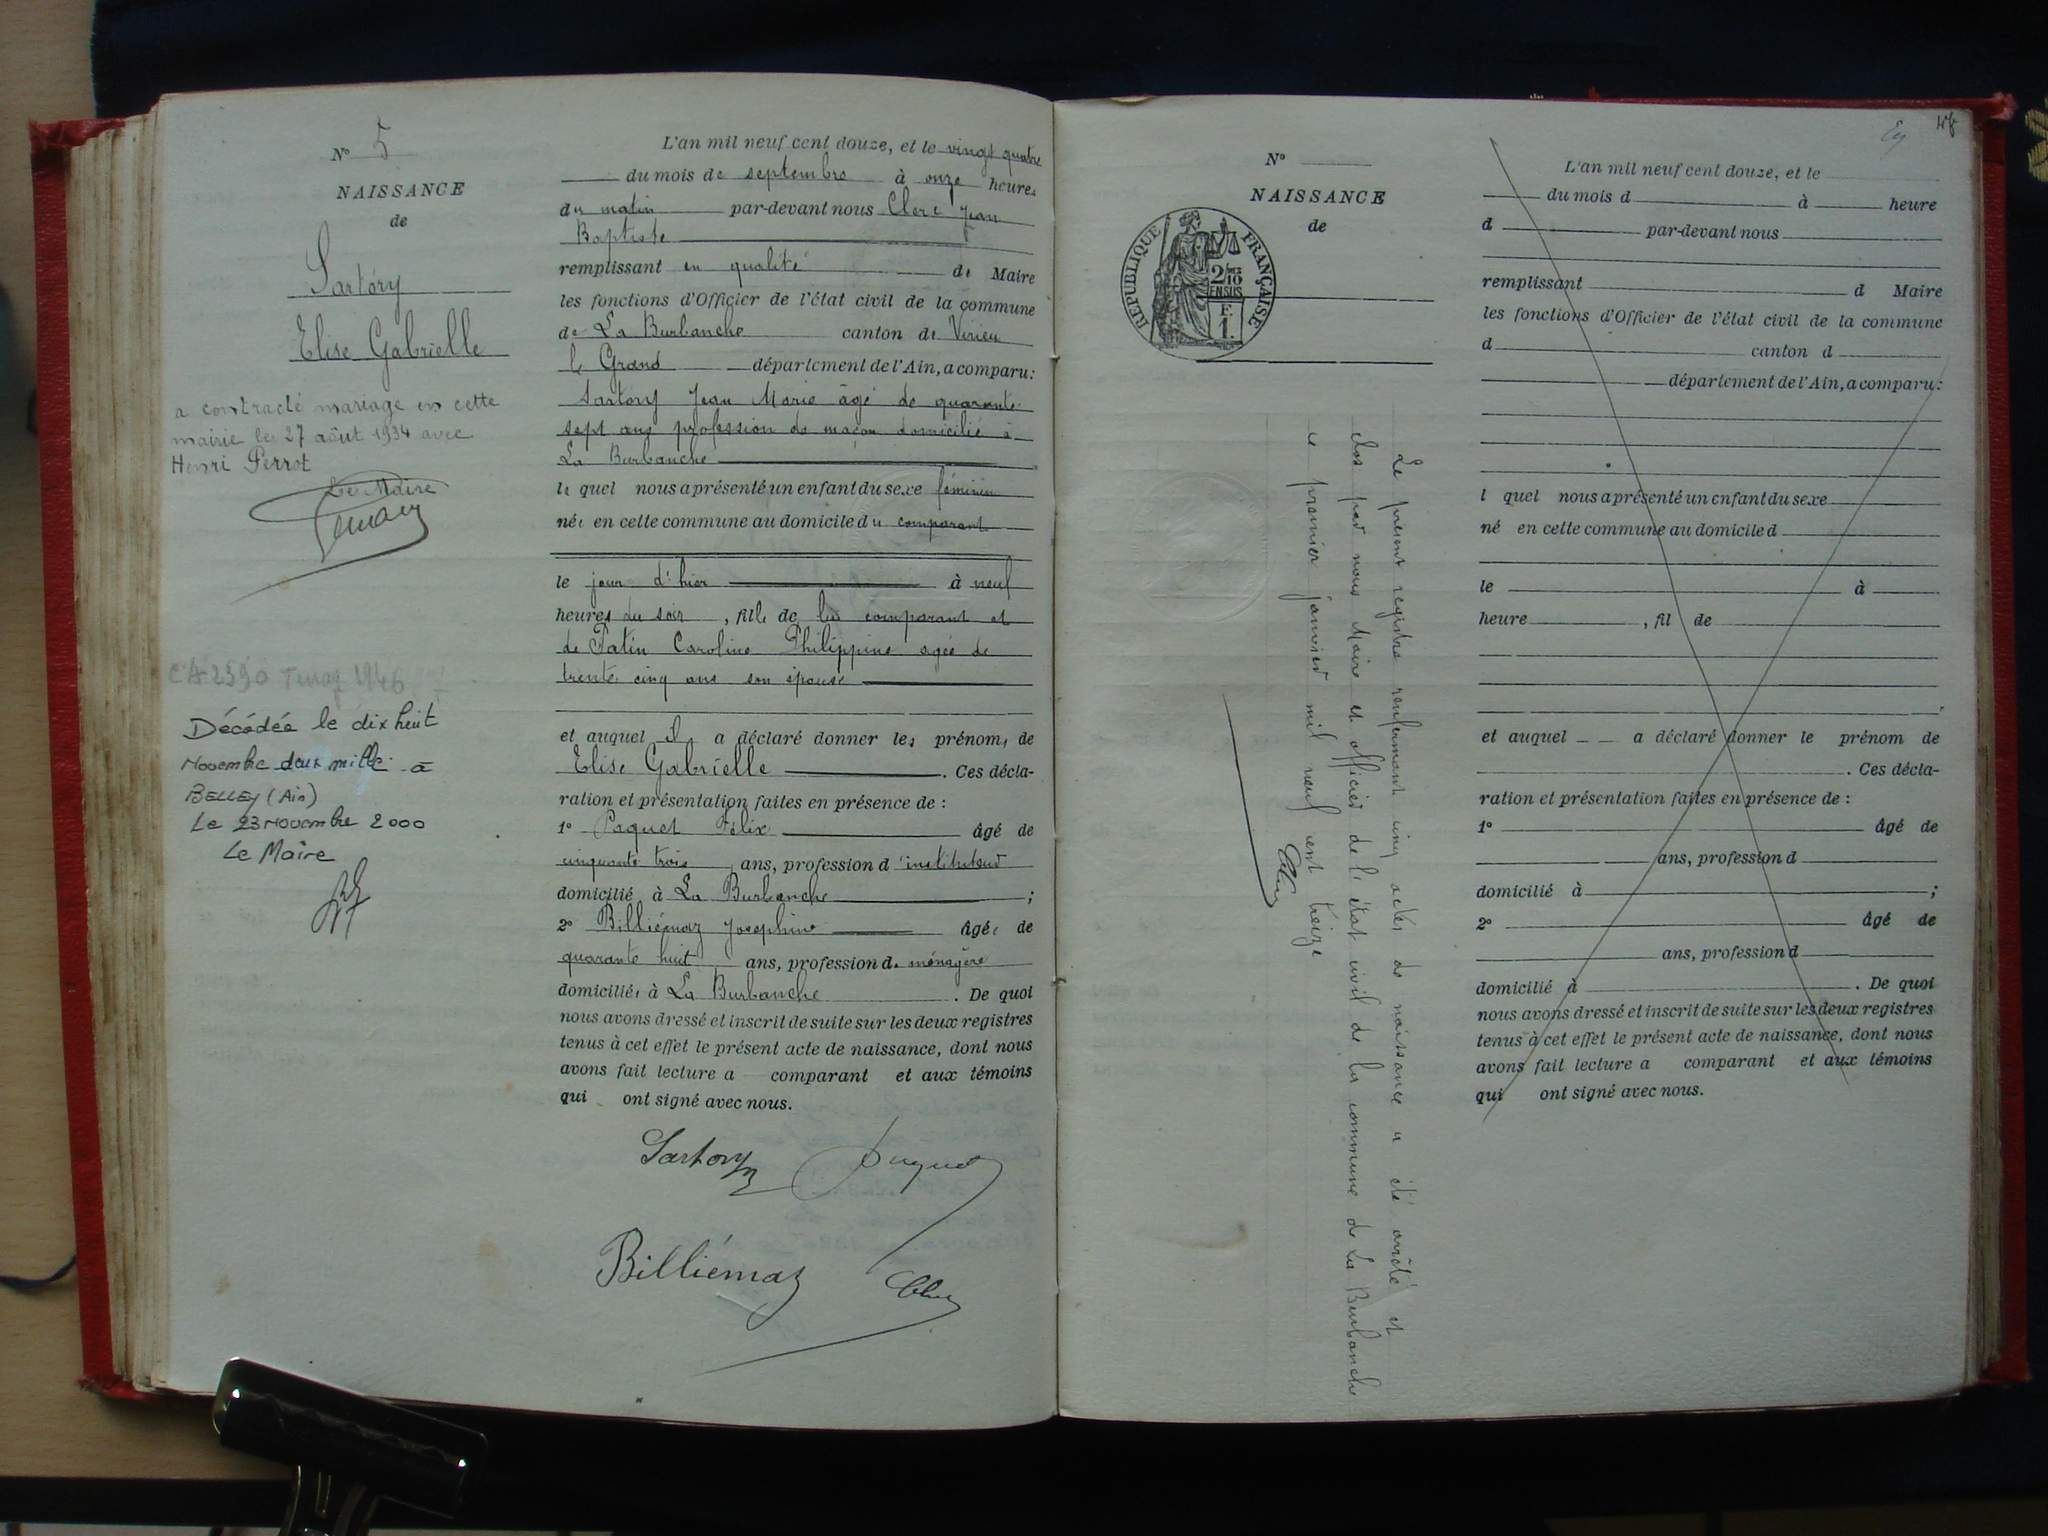 N° 5
NAISSANCE
de
Sartory
Elise Gabrielle
a contracté mariage en cette
mairie le 27 août 1934 avec
Henri Perrot
Le Maire
CA 2590 Tenay 1946
Décédée le dix huit
Novembre deux mille à
BELLEY (Ain)
Le 23 Novembre 2000
Le Maire
L'an mil neuf cent douze, et le vingt quatre
du mois de septembre à onze heures
du matin par-devant nous Clerc Jean
Baptiste
remplissant en qualité de Maire
les fonctions d'Officier de l'état civil de la commune
de La Burbanche canton de Virieu
le Grand département de l'Ain, a comparu:
Sartory Jean Marie âgé de quarante
sept ans profession de maçon domicilié à
La Burbanche
le quel nous a présenté un enfant du sexe féminin
née en cette commune au domicile du comparant
le jour d'hier à neuf
heures du soir, fille de lui comparant et
de Patin Caroline Philippine agée de
trente cinq ans son épouse
et auquel il a déclaré donner les prénoms de
Elise Gabrielle. Ces décla-
ration et présentation faites en présence de :
1° Paquet Félix âgé de
cinquante trois ans, profession d'instituteur
domicilié à La Burbanche ;
2° Billiémaz Josephine âgée de
quarante huit ans, profession de ménagère
domiciliée à La Burbanche. De quoi
nous avons dressé et inscrit de suite sur les deux registres
tenus à cet effet le présent acte de naissance, dont nous
avons fait lecture a comparant et aux témoins
qui ont signé avec nous.
Sartory Paquet
Billiémaz Clerc
N°
NAISSANCE
de
RÉPUBLIQUE FRANÇAISE
2/10
EN SUS
F.
1.
Le présent registre renfermant cinq actes de naissance a été arrêté et
clos par nous Maire et officier de l'état civil de la commune de La Burbanche
ce premier janvier mil neuf cent treize
Clerc
48
L'an mil neuf cent douze, et le
du mois d à heure
d par-devant nous
remplissant d Maire
les fonctions d'Officier de l'état civil de la commune
d canton d
département de l'Ain, a comparu:
l quel nous a présenté un enfant du sexe
né en cette commune au domicile d
le à
heure , fil de
et auquel a déclaré donner le prénom de
. Ces décla-
ration et présentation faites en présence de :
1° âgé de
ans, profession d
domicilié à ;
2° âgé de
ans, profession d
domicilié à . De quoi
nous avons dressé et inscrit de suite sur les deux registres
tenus à cet effet le présent acte de naissance, dont nous
avons fait lecture a comparant et aux témoins
qui ont signé avec nous.